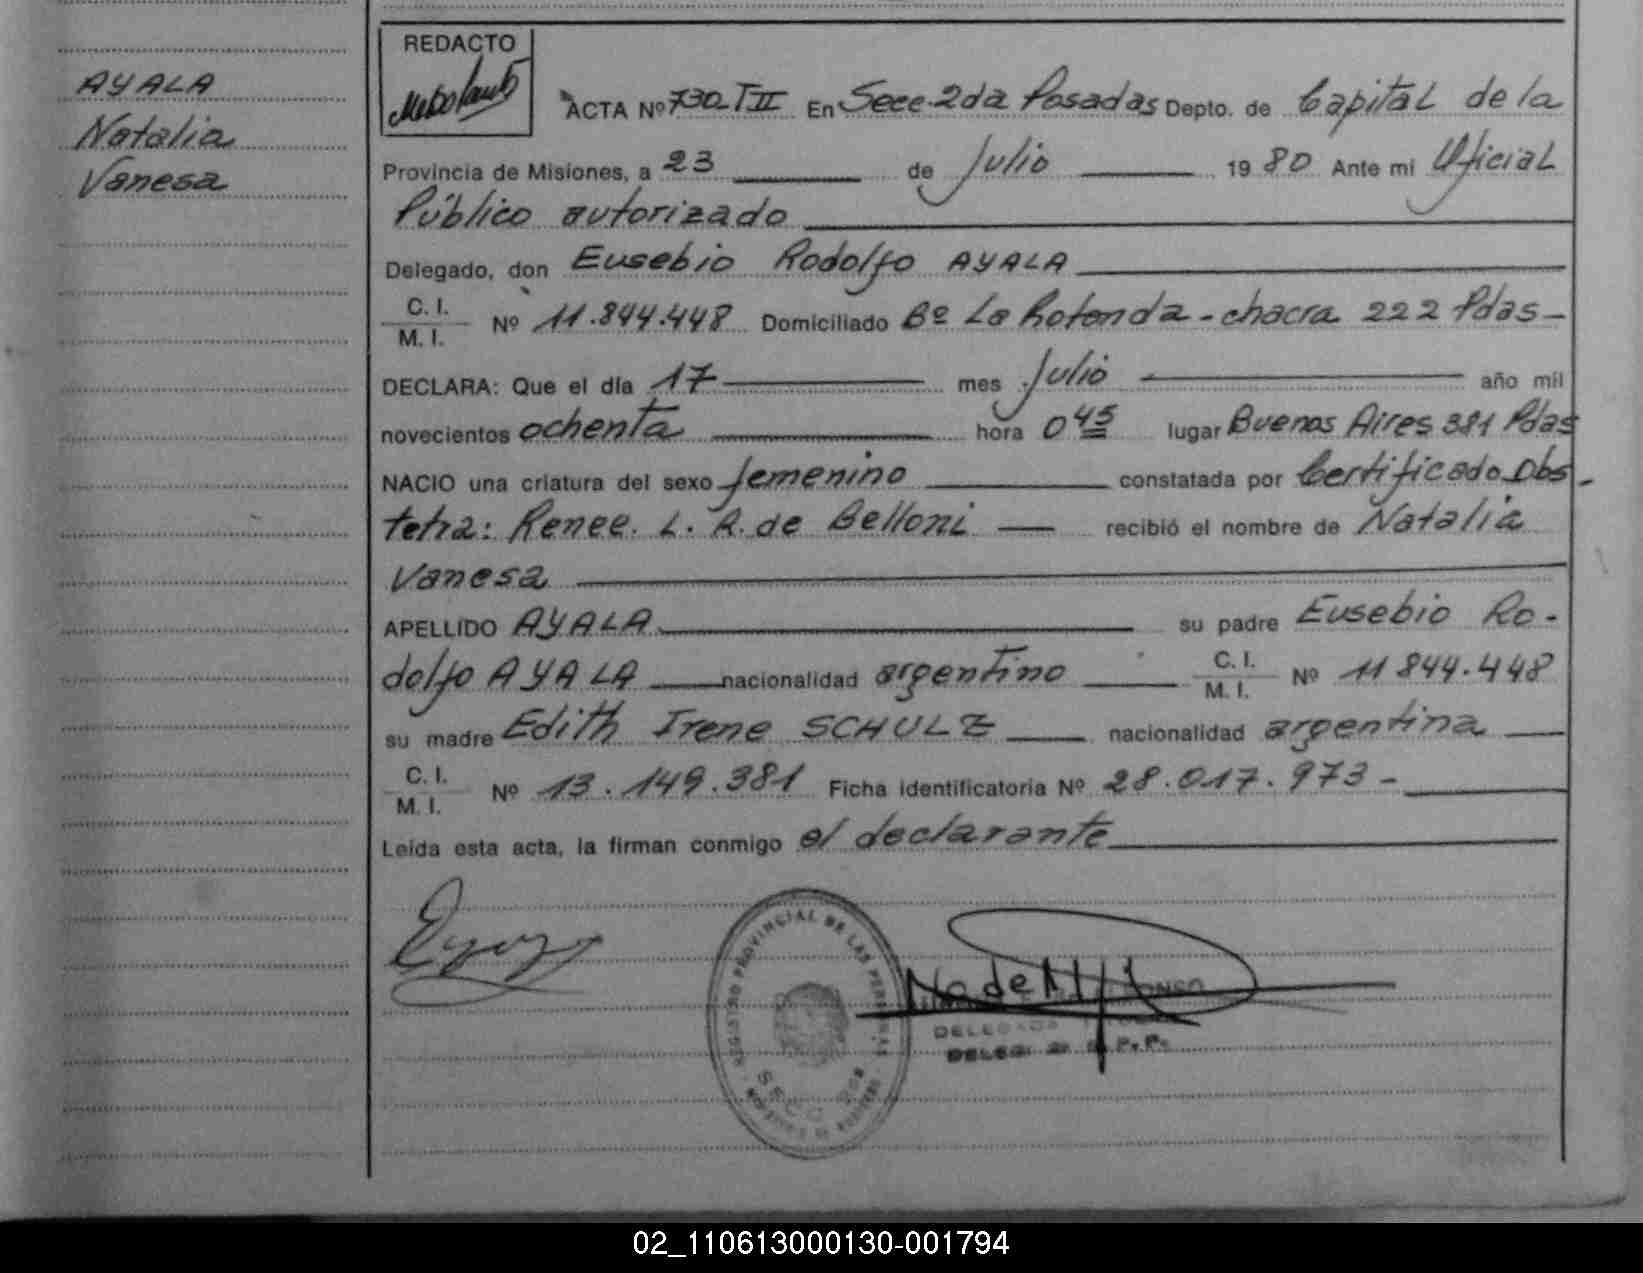 AYALA
Natalia
Vanesa
REDACTO
ACTA Nº 730 T II En Secc. 2da Posadas Depto. de Capital de la
Provincia de Misiones, a 23 de Julio 1980 Ante mi Oficial
Público autorizado
Delegado, don Eusebio Rodolfo AYALA
C. I.
M. I. Nº 11.844.448 Domiciliado Bº La Rotonda - chacra 222 Pdas-
DECLARA: Que el día 17 mes Julio año mil
novecientos ochenta hora 0 45 lugar Buenos Aires 381 Pdas
NACIO una criatura del sexo femenino constatada por Certificado Obs-
tetra: Renee. L. R. de Belloni recibió el nombre de Natalia
Vanesa
APELLIDO AYALA su padre Eusebio Ro-
dolfo AYALA nacionalidad argentino C. I. M. I. Nº 11844.448
su madre Edith Irene SCHULZ nacionalidad argentina
C. I.
M. I. Nº 13.149.381 Ficha identificatoria Nº 28.017.973-
Leída esta acta, la firman conmigo el declarante
REGISTRO PROVINCIAL DE LAS PERSONAS
02_110613000130-001794